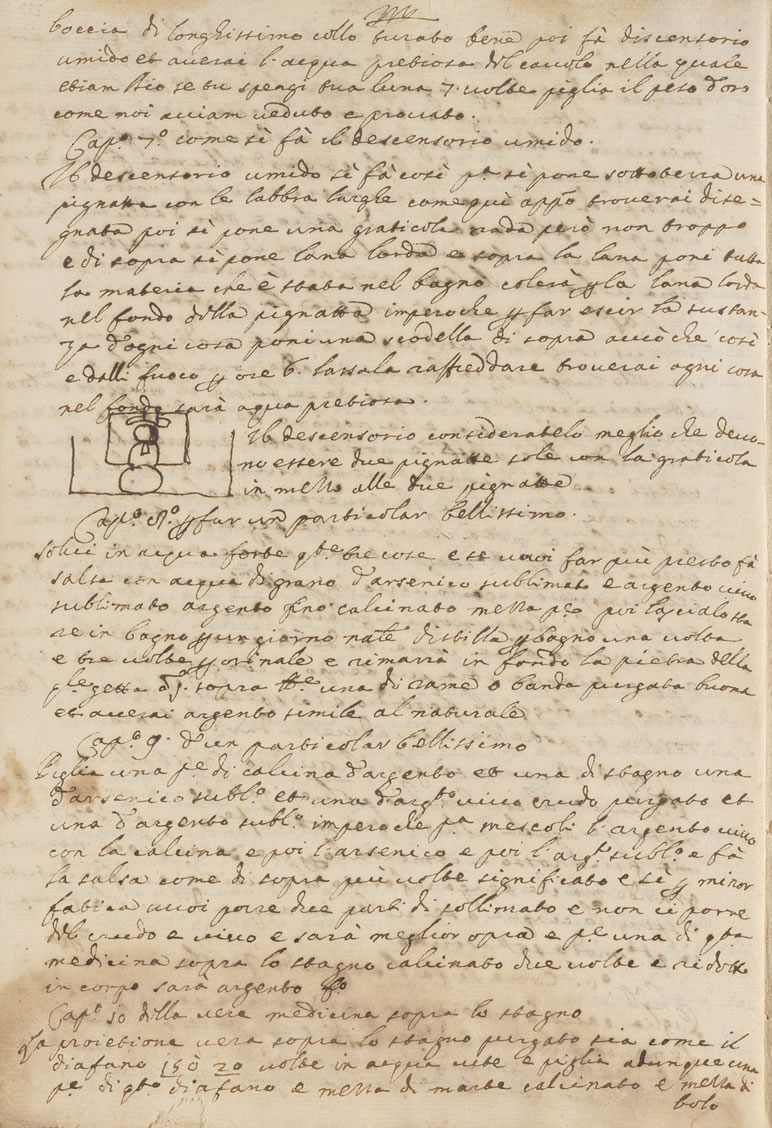 boccia di longhissimo collo turato bene poi fà discensorio
umido et averai l'acqua pretiosa del cavolo nella quale
etiam Dio se tu spengi tua luna 7. volte piglia il peso d'oro
come noi aviam veduto e provato.
Cap.º 7.º come si fà il descensorio umido.
Il descensorio umido si fà così p.ª si pone sotto terra una
pignatta con le labbra larghe come quì app.º troverai dise=
gnata poi si pone una graticola rada però non troppo
e di sopra si pone lana lorda e sopra la lana poni tutta
la materia che è stata nel bagno colerà p la lana lorda
nel fondo della pignatta imperoche p far escir la sustan-
za d'ogni cosa poni una scodella di sopra acciò che così
e dalli fuoco p ore 6. lassala raffreddare troverai ogni cosa
nel fondo sarà aqua pretiosa.
Il descensorio consideratelo meglio che devo-
no essere due pignatte sole con la graticola
in mezzo alle due pignatte
Cap.º 8.º p far un particolar bellissimo.
solvi in acqua forte q.te tre cose e se vuoi far più presto fà
salsa con acqua di grano d'arsenico sublimato e argento vivo
sublimato argento fino calcinato mezza p.e poi lascialo sta
re in bagno p un giorno nat.e distilla p bagno una volta
e tre volte p orinale e rimarrà in fondo la pietra della
q.le getta sopra una di rame o banda purgata buona
et averai argento simile al naturale
Cap.º 9. d'un particolar bellissimo
Piglia una p.e di calcina d'argento et una di stagno una
d'arsenico subl.º et una d'arg.to vivo crudo purgato et
una d'argento subl.º imperoche p.ª mescoli l'argento vivo
con la calcina e poi l'arsenico e poi l'arg.to subl.º e fà
la salsa come di sopra più volte significato e si p minor
fatica vuoi porre due parti di sollimato e non ci porre
del crudo e vivo e sarà meglior opra e p.e una di q.ta
medicina sopra lo stagno calcinato due volte e ridotto
in corpo sarà argento f.º
Cap.º 10 della vere medicina sopra lo stagno
La proietione vera sopra lo stagno purgato sia come il
diafano 15 ò 20 volte in acqua vite e piglia adunque una
p.e di q.to diafano e mezza di marte calcinato e mezza di
bolo